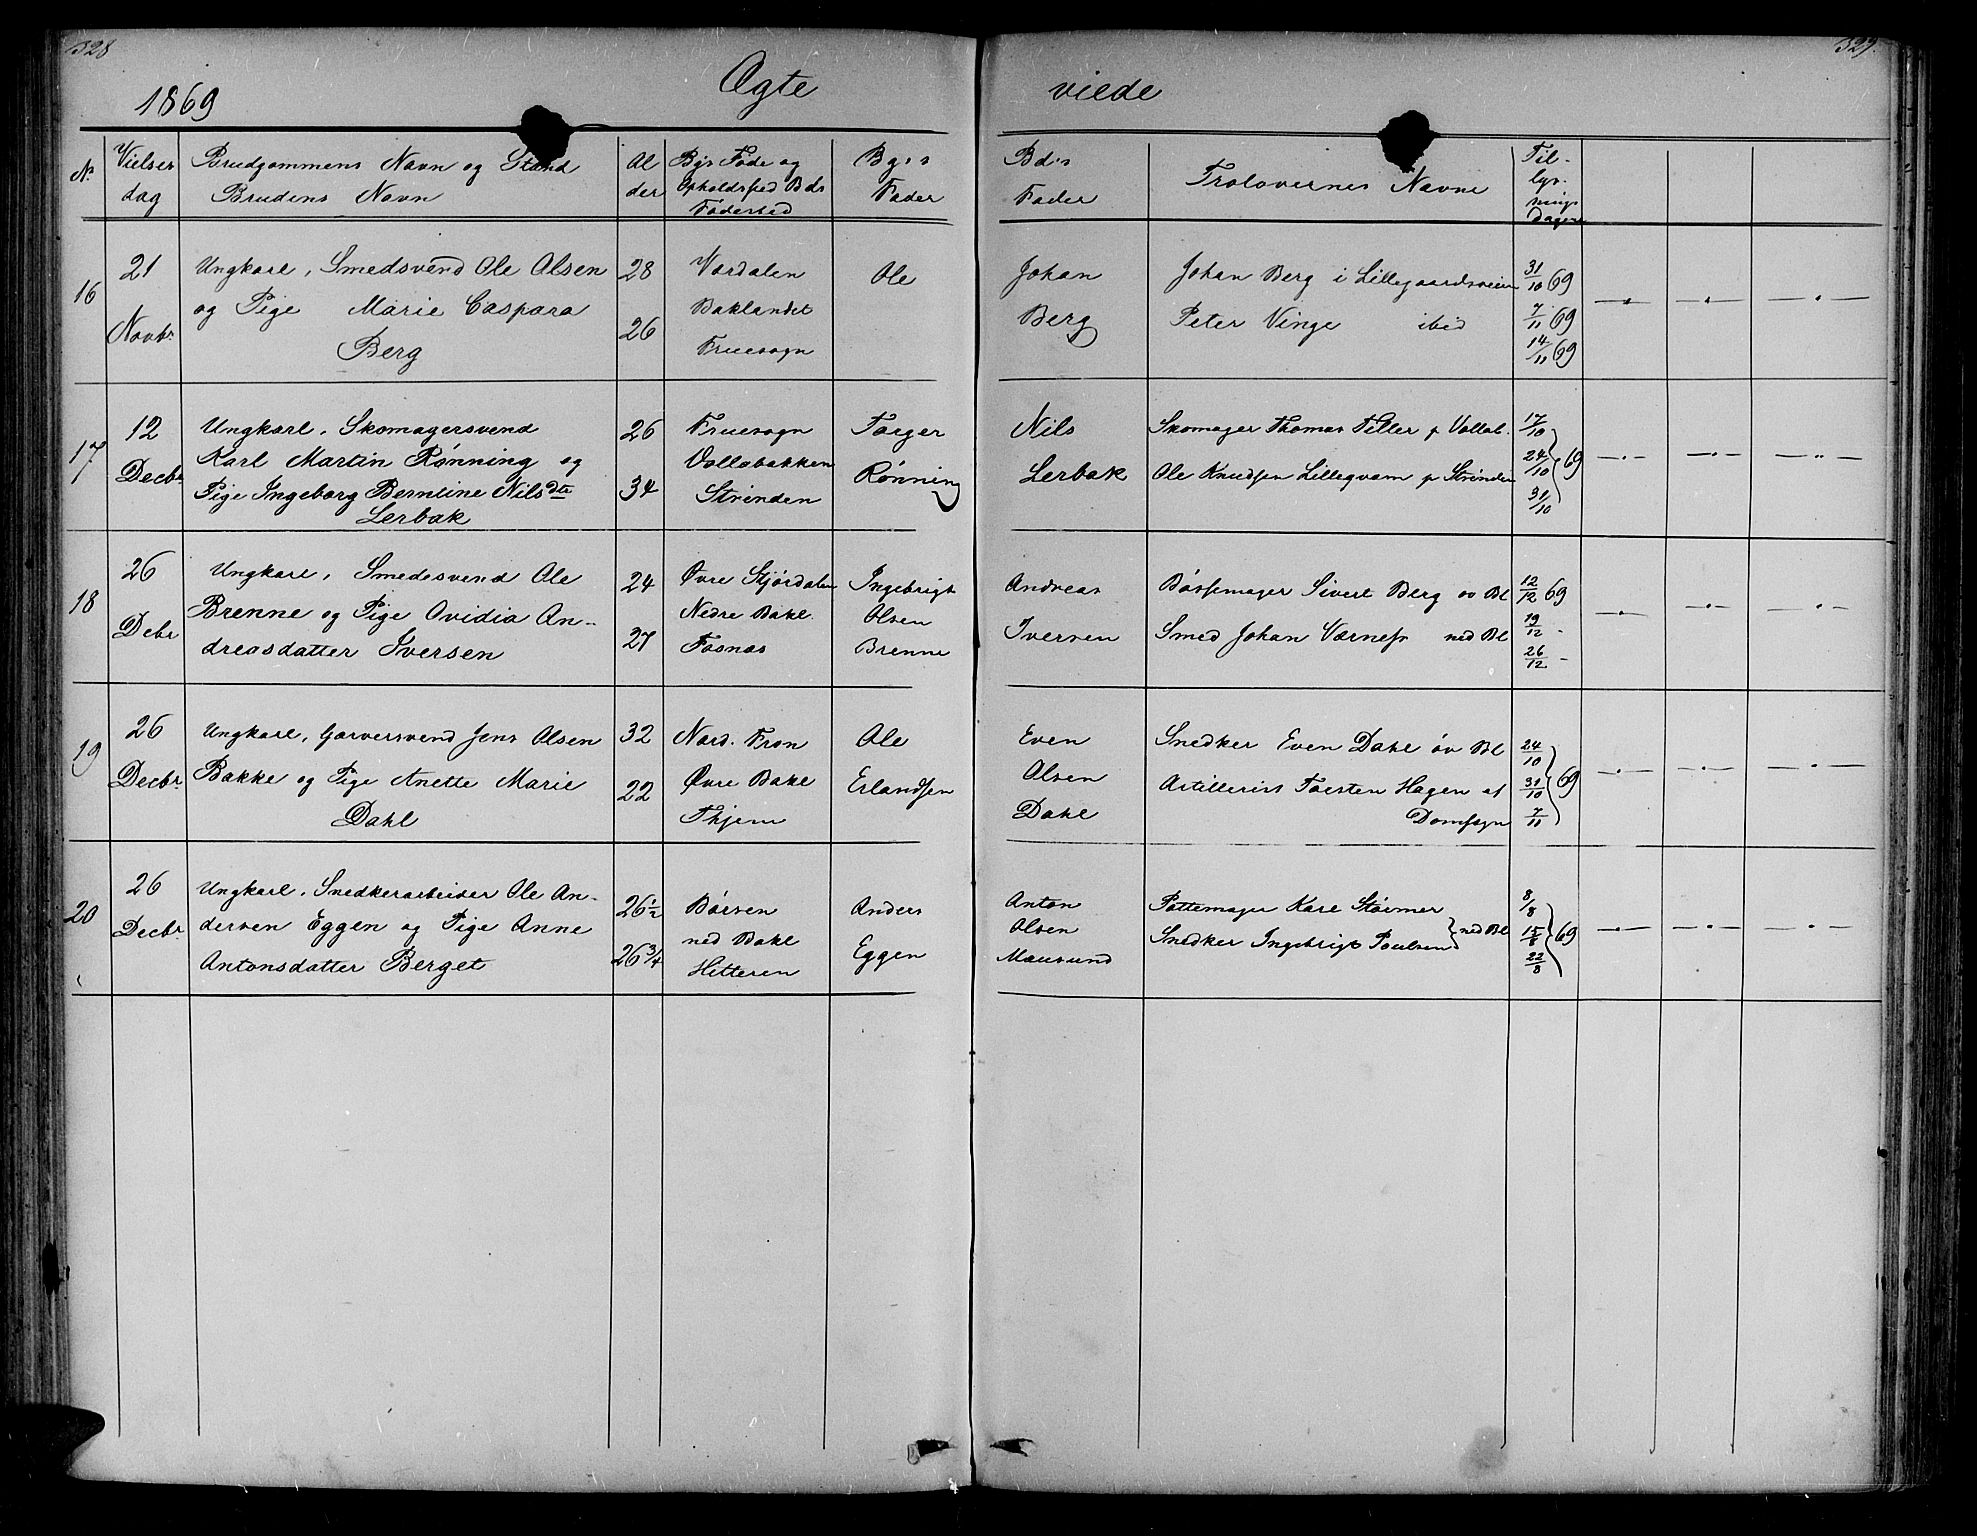 328
329.
1869
Ægte
viede
No
Vielses
dag
Brudgommens Navn og Stand
Brudens Navn
Al
der
Bgs Føde og
Opholdssted Bds
Fødested
Bg.s
Fader
Bd.s
Fader
Trolovernes Navne
Til-
lys-
nings
Dagene
16
21
Novbr
Ungkarl, Smedsvend Ole Olsen
og Pige Marie Caspara
Berg
28
26
Værdalen
Baklandet
Fruesogn
Ole
Johan
Berg
Johan Berg i Lillegaardsveien
Peter Vinge ibid
31/10 69
7/11 69
14/11 69
17
12
Decbr
Ungkarl, Skomagersvend
Karl Martin Rønning og
Pige Ingeborg Berntine Nilsdtr
Lerbak
26
34
Fruesogn
Vollabakken
Strinden
Torger
Rønning
Nils
Lerbak
Skomager Thomas Tiller p Vollab.
Ole Knudsen Lillegvam p Strinden
17/10
24/10 69
31/10
18
26
Debr
Ungkarl, Smedesvend Ole
Brenne og Pige Ovidia An-
dreasdatter Iversen
24
27
Øvre Stjørdalen
Nedre Bakl.
Fosnæs
Ingebrigt
Olsen
Brenne
Andreas
Iversen
Bøssemager Sivert Berg øv Bl
Smed Johan Værnes ned Bl
12/12 69
19/12 -
26/12 -
19
26
Decbr
Ungkarl, Garversvend Jens Olsen
Bakke og Pige Anette Marie
Dahl
32
22
Nord. Fron
Øvre Bakl
Thjem
Ole
Erlandsen
Even
Olsen
Dahl
Snedker Even Dahl øv Bl
Artillerist Torsten Hagen af
Domsogn
24/10
31/10 69
7/11
20
26
Decbr
Ungkarl, Snedkerarbeider Ole An-
dersen Eggen og Pige Anne
Antonsdatter Berget
26 1/2
26 3/4
Børsen
ned Bakl
Hitteren
Anders
Eggen
Anton
Olsen
Mausund
Pottemager Karl Størmer
Snedker Ingebrigt Poulsen ned Bl
8/8
15/8 69
22/8